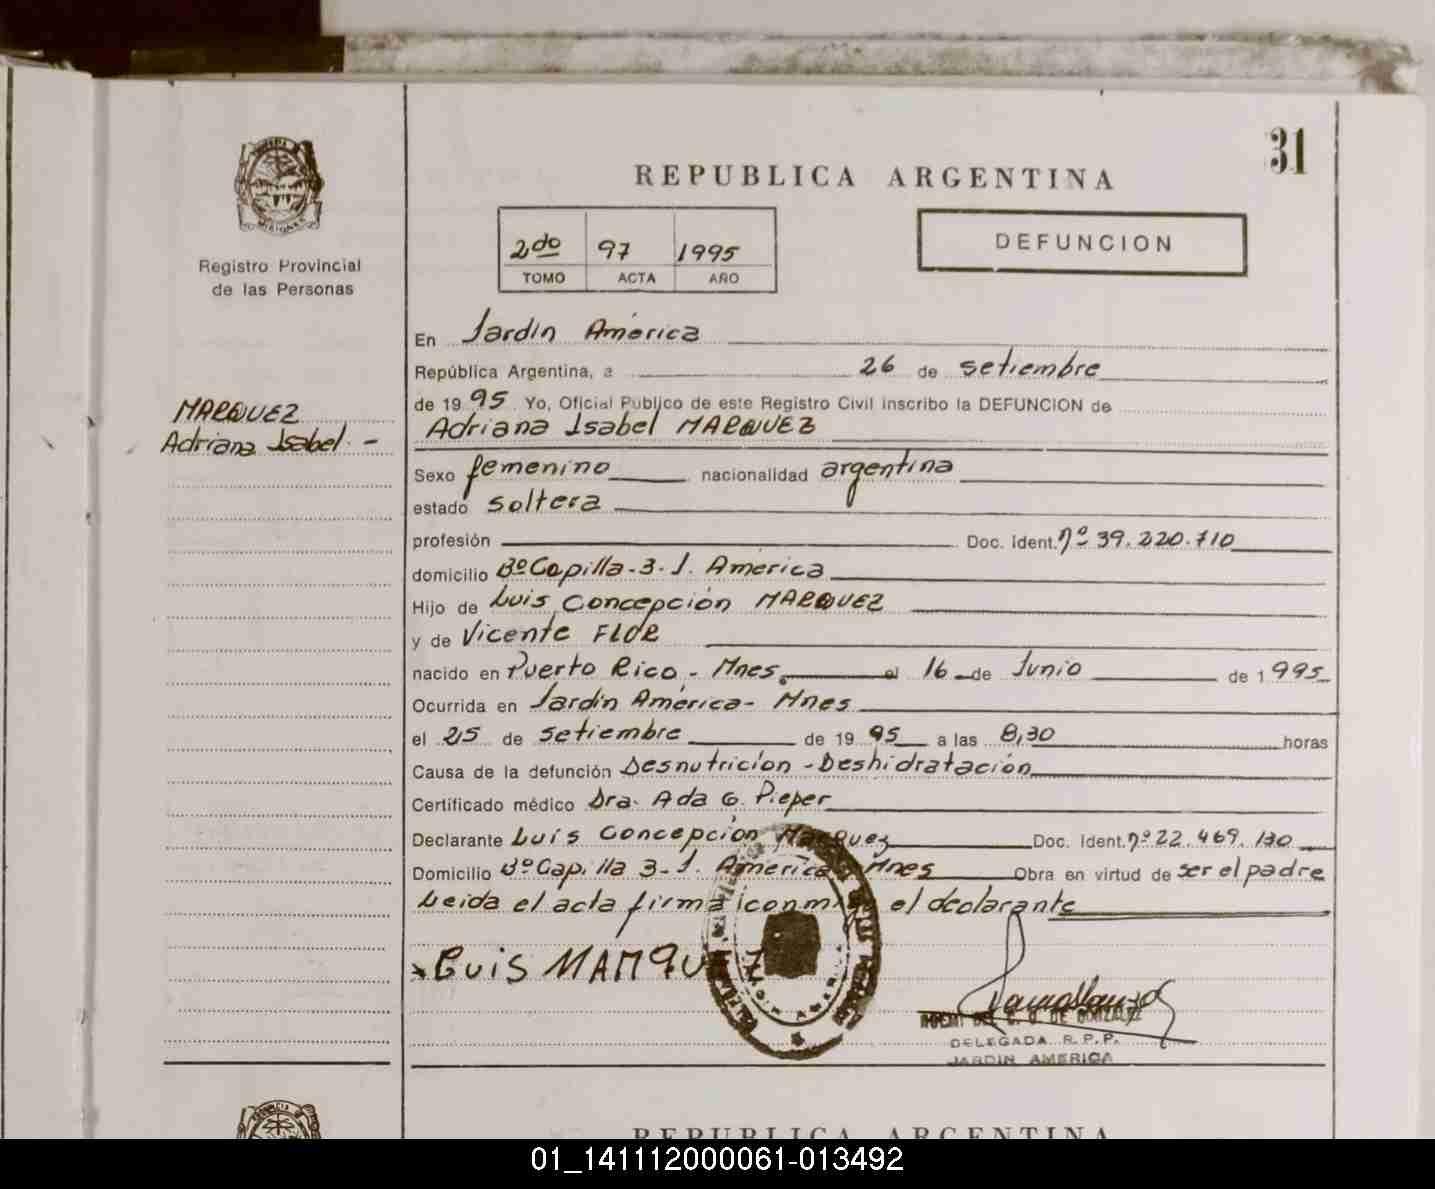 31
REPUBLICA ARGENTINA
Registro Provincial
de las Personas
2do 97 1995
TOMO ACTA AÑO
DEFUNCION
MARQUEZ
Adriana Isabel. -
En Jardín América
República Argentina, a 26 de setiembre
de 1995 Yo, Oficial Público de este Registro Civil inscribo la DEFUNCION de
Adriana Isabel MARQUEZ
Sexo femenino nacionalidad argentina
estado soltera
profesión Doc. Ident. nº 39.220.710
domicilio Bº Capilla-3-J. América
Hijo de Luis Concepción MARQUEZ
y de Vicente FLOR
nacido en Puerto Rico - Mnes. el 16 de Junio de 1995
Ocurrida en Jardín América - Mnes
el 25 de setiembre de 1995 a las 8,30 horas
Causa de la defunción Desnutrición - Deshidratación
Certificado médico Dra. Ada G. Pieper
Declarante Luís Concepción Marquez Doc. Ident. nº 22.469.130
Domicilio Bº Capilla 3-J. América Mnes Obra en virtud de ser el padre
Leida el acta firma conmigo el declarante
LUIS MARQUEZ
DE GONZALEZ
DELEGADA R.P.P.
JARDIN AMERICA
REPUBLICA ARGENTINA
01_141112000061-013492